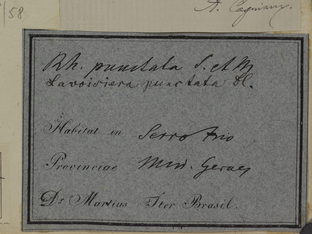 /58
A. Cogniaux.
Rh. punctata S. et M
Lavoisiera punctata DC.
Habitat in Serro frio
Provinciae Min. Geraes
Dr Martius Iter Brasil.